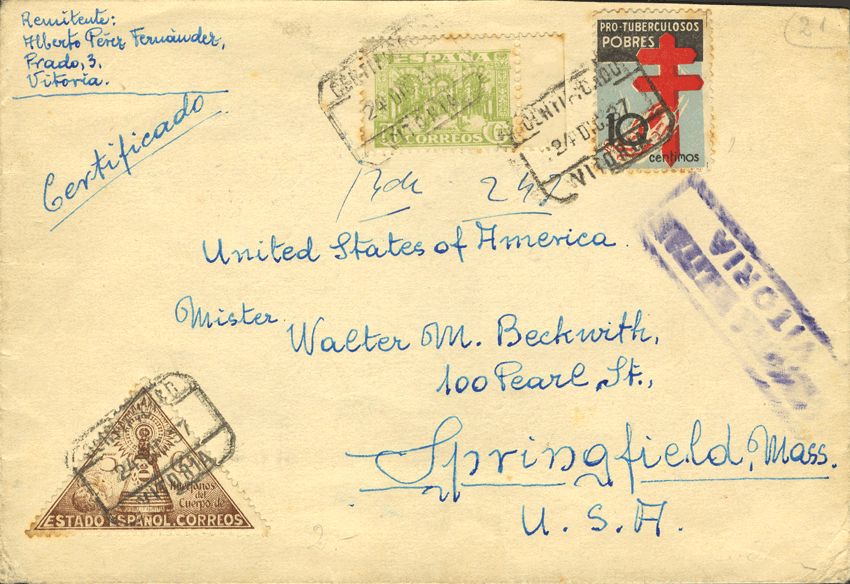 Remitente:
Alberto Pérez Fernández,
Prado, 3.
Vitoria.
Certificado
ESPAÑA
CORREOS
CERTIFICADO
24 DIC 37
VITORIA
PRO-TUBERCULOSOS
POBRES
10
centimos
CERTIFICADO
24 DIC 37
VITORIA
21
United States of America
Mister Walter M. Beckwith,
100 Pearl St.,
Springfield, Mass.
U. S. A.
MILITAR
VITORIA
CERTIFICADO
VITORIA
Huerfanos
del
Cuerpo de
ESTADO ESPAÑOL. CORREOS